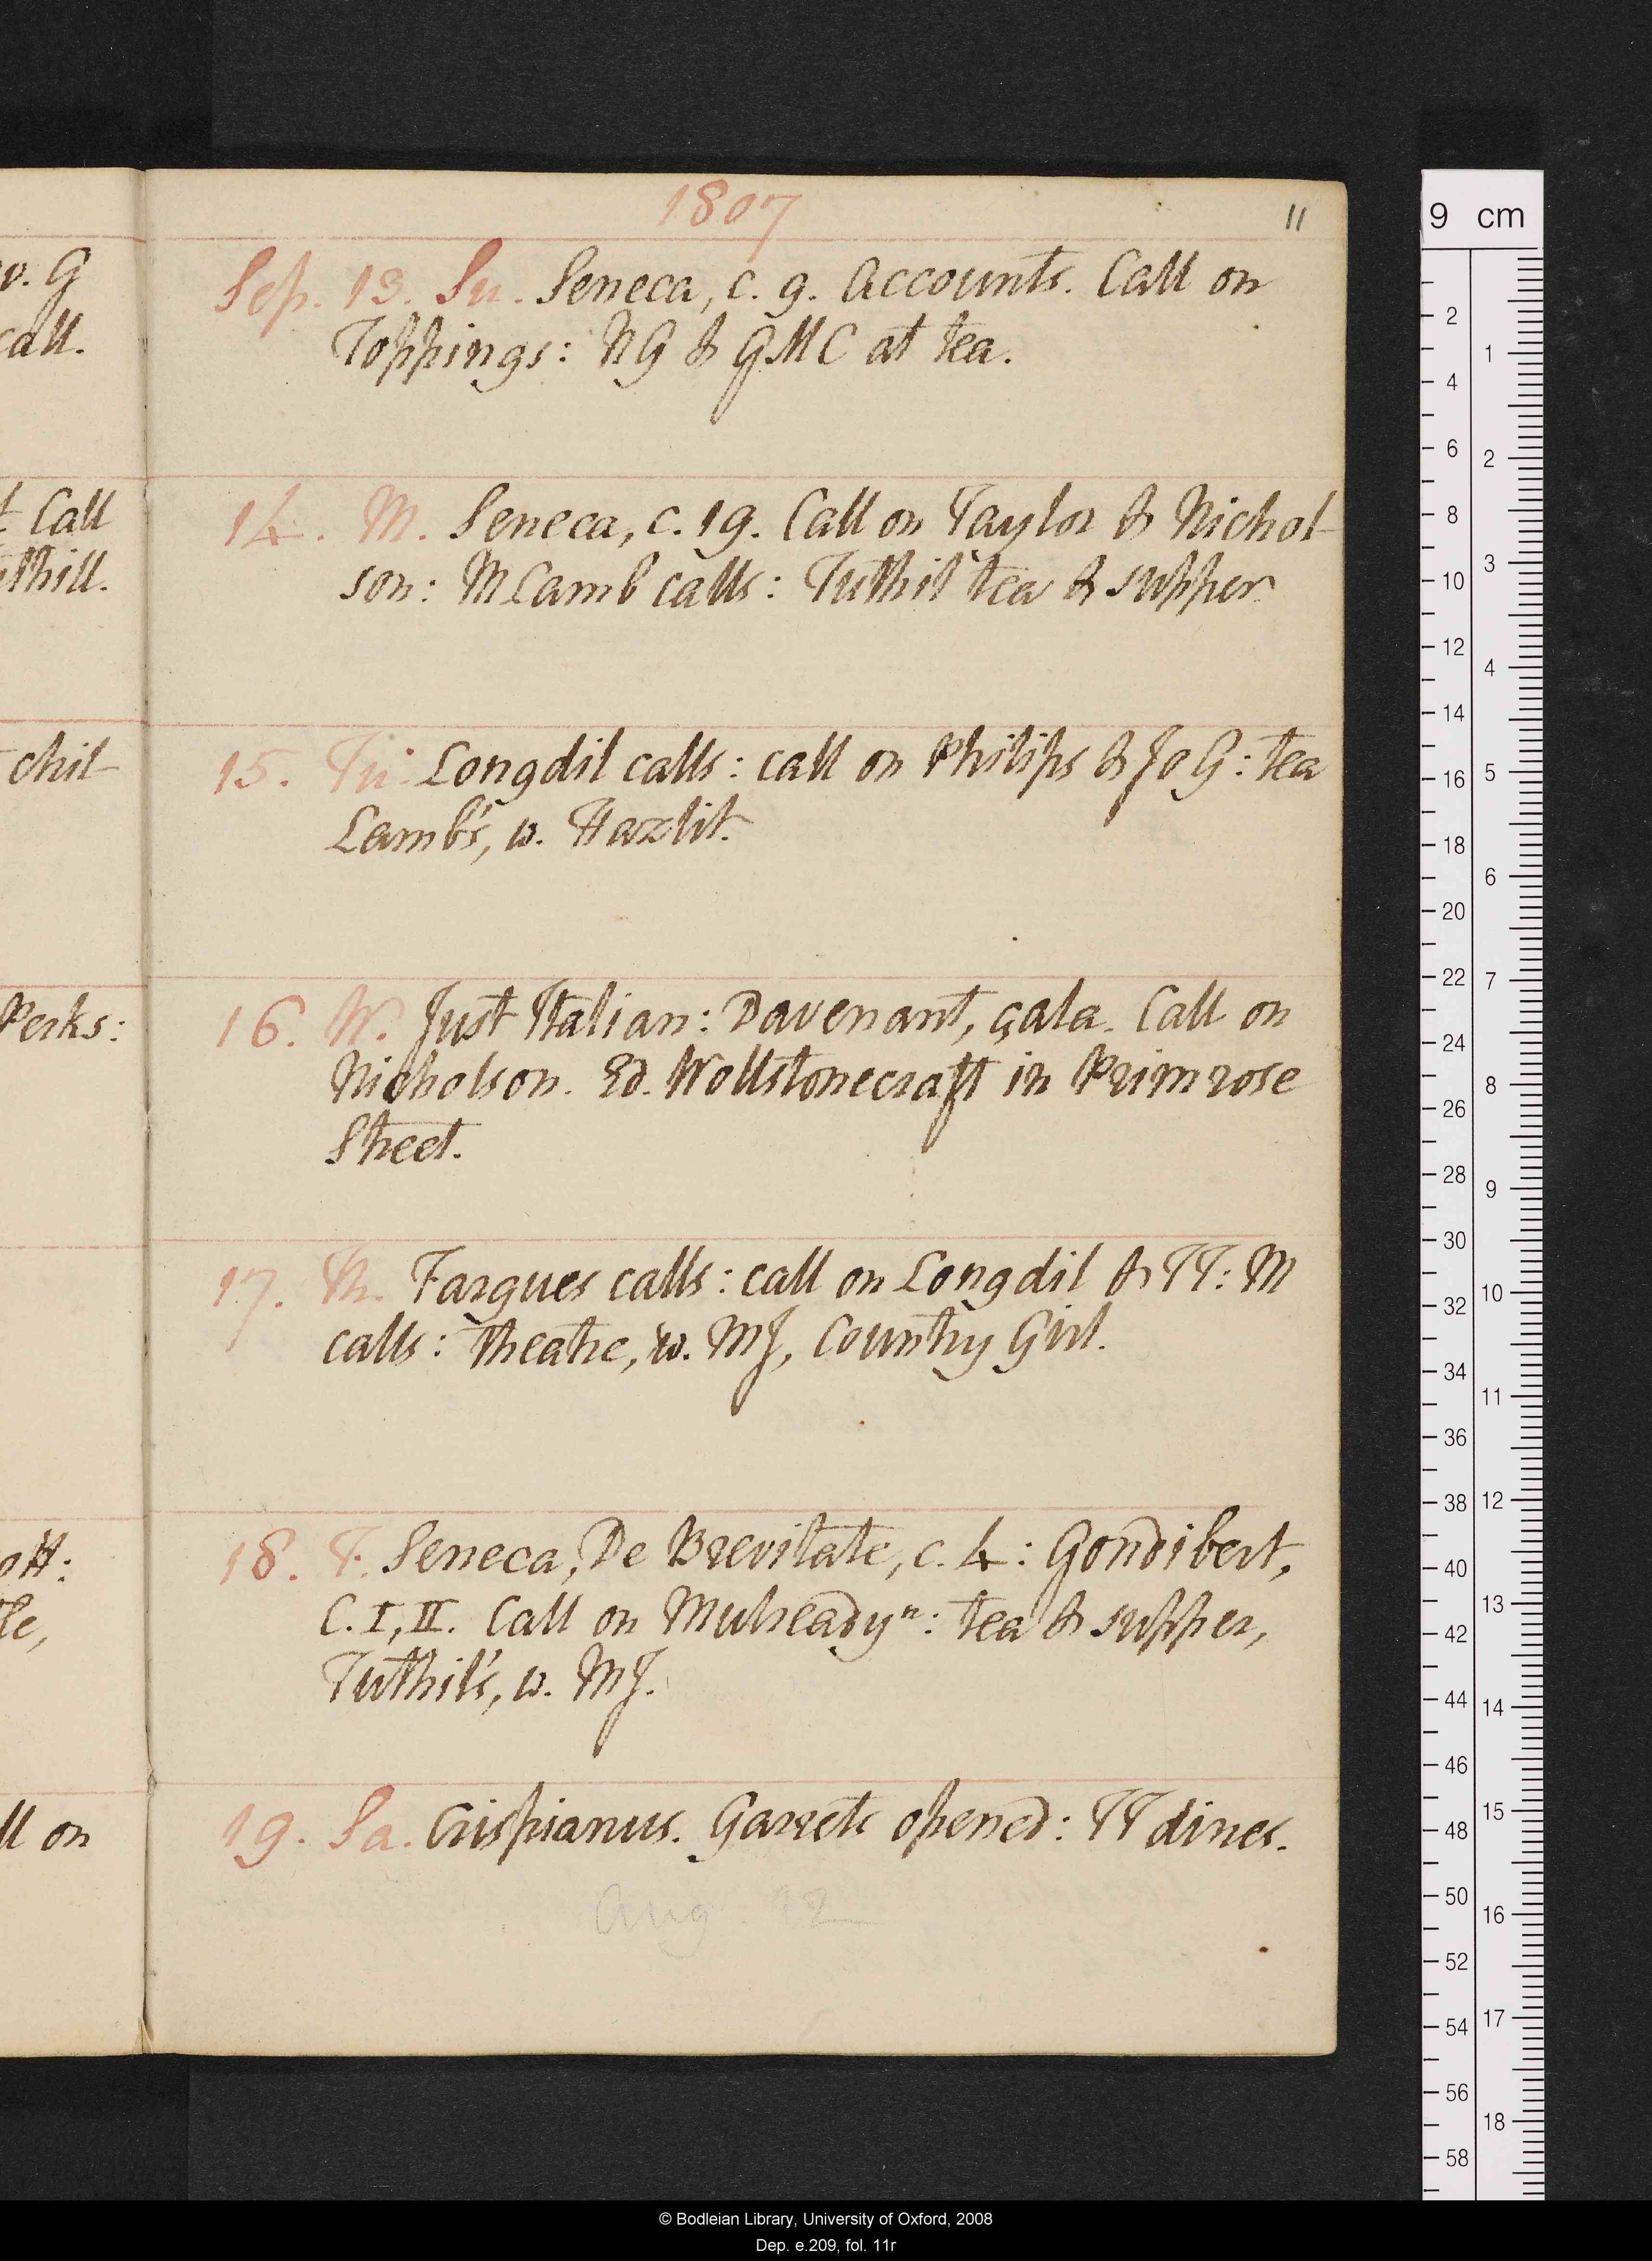 1807
11
Sep. 13. Su. Seneca, c. 9. Accounts. Call on
Toppings: NG & GMC at tea.
14. M. Seneca, c. 19. Call on Taylor & Nichol-
son: M Lamb calls: Tuthil tea & supper
15. Tu. Longdil calls: call on Philips & Jo G: tea
Lamb's, w. Hazlit.
16. W. Just Italian: Davenant, çala. Call on
Nicholson. Ed. Wollstonecraft in Primrose
Street.
17. Th. Fargues calls: call on Longdil & TT: M
calls: theatre, w. MJ, Country Girl.
18. F. Seneca, De Brevitate, c. 4: Gondibert,
C. I, II. Call on Mulreadyⁿ: tea & supper,
Tuthil's, w. MJ.
19. Sa. Crispianus. Garrets opened: TT dines.
Aug. 12
v. G
call.
t Call
thill.
chil-
Perks:
ott:
le,
ll on
9 cm
2
4
6
8
10
12
14
16
18
20
22
24
26
28
30
32
34
36
38
40
42
44
46
48
50
52
54
56
58
1
2
3
4
5
6
7
8
9
10
11
12
13
14
15
16
17
18
© Bodleian Library, University of Oxford, 2008
Dep. e.209, fol. 11r